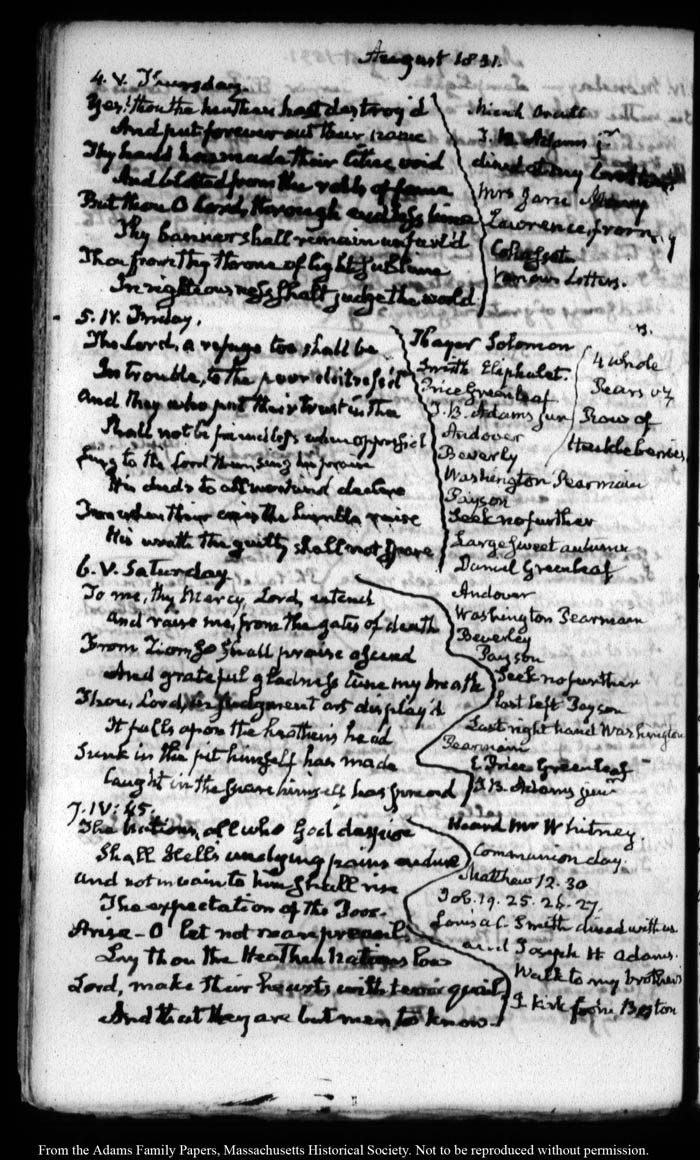 August 1831.
4. V. Thursday.
Yes! thou the heathen hast destroy'd
And put forever out their name
Thy hand has made their cities void
And blotted from the rolls of fame
But thou O Lord, through endless time
Thy banner shall remain unfurl'd
Thou from thy throne of light sublime
In righteousness shalt judge the world.
Micah Orcutt
T. B. Adams jr
dined at my brother's
Mrs Jane
Lawrence, from
Cohasset
Various Letters.
5. IV. Friday.
The Lord, a refuge too shall be
In trouble, to the poor distress'd
And they who put their trust in thee
Shall not be friendless when oppress'd
Sing to the Lord then, sing his praise
His deeds to all mankind declare
From when their cries the humble raise
His wrath the guilty shall not spare
Thayer Solomon
Smith Eliphalet.
Price Greenleaf
T. B. Adams jun
Andover
Beverly
Washington Pearmain
Payson
Seek no further
Large Sweet autumn
Daniel Greenleaf
4 whole
Pears
Row of
Huckleberries.
6. V. Saturday
To me, thy Mercy, Lord, extend
And raise me, from the gates of death
From Zion, so shall praise ascend
And grateful gladness tune my breath
Thou, Lord, in judgment art display'd
It falls upon the heathen's head
Sunk in the pit himself has made
Caught in the snare himself has spread
Andover
Washington Pearmain
Beverley
Payson
Seek no further
Last left Payson
Last right hand Washington
Pearmain
E. Price Greenleaf
T. B. Adams junr
7. IV: 45.
The Nations, all who God despise
Shall Hell's undying pains endure
And not in vain to him shall rise
The expectation of the Poor.
Arise - O let not man prevail
Lay thou the Heathen Nations low
Lord, make their hearts with terror quail
And that they are but men to know.
Heard Mr Whitney.
Communion day.
Matthew 12. 30
Job. 19. 25. 26. 27
Louisa C. Smith dined with us
and Joseph H Adams.
Walk to my brother's
I. Kirk from Boston
From the Adams Family Papers, Massachusetts Historical Society. Not to be reproduced without permission.